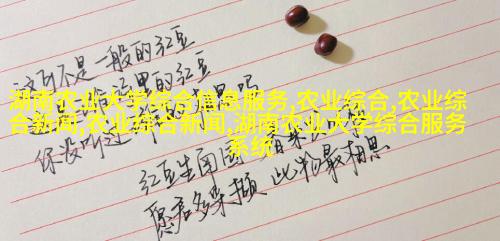 这可不是一般的红豆
里的红豆
湖南农业大学综合信息服务,农业综合,农业综
合新闻,农业综合新闻,湖南农业大学综合服务
系统
你没听过
红豆生南国 春来
愿君多采撷 此物最相思